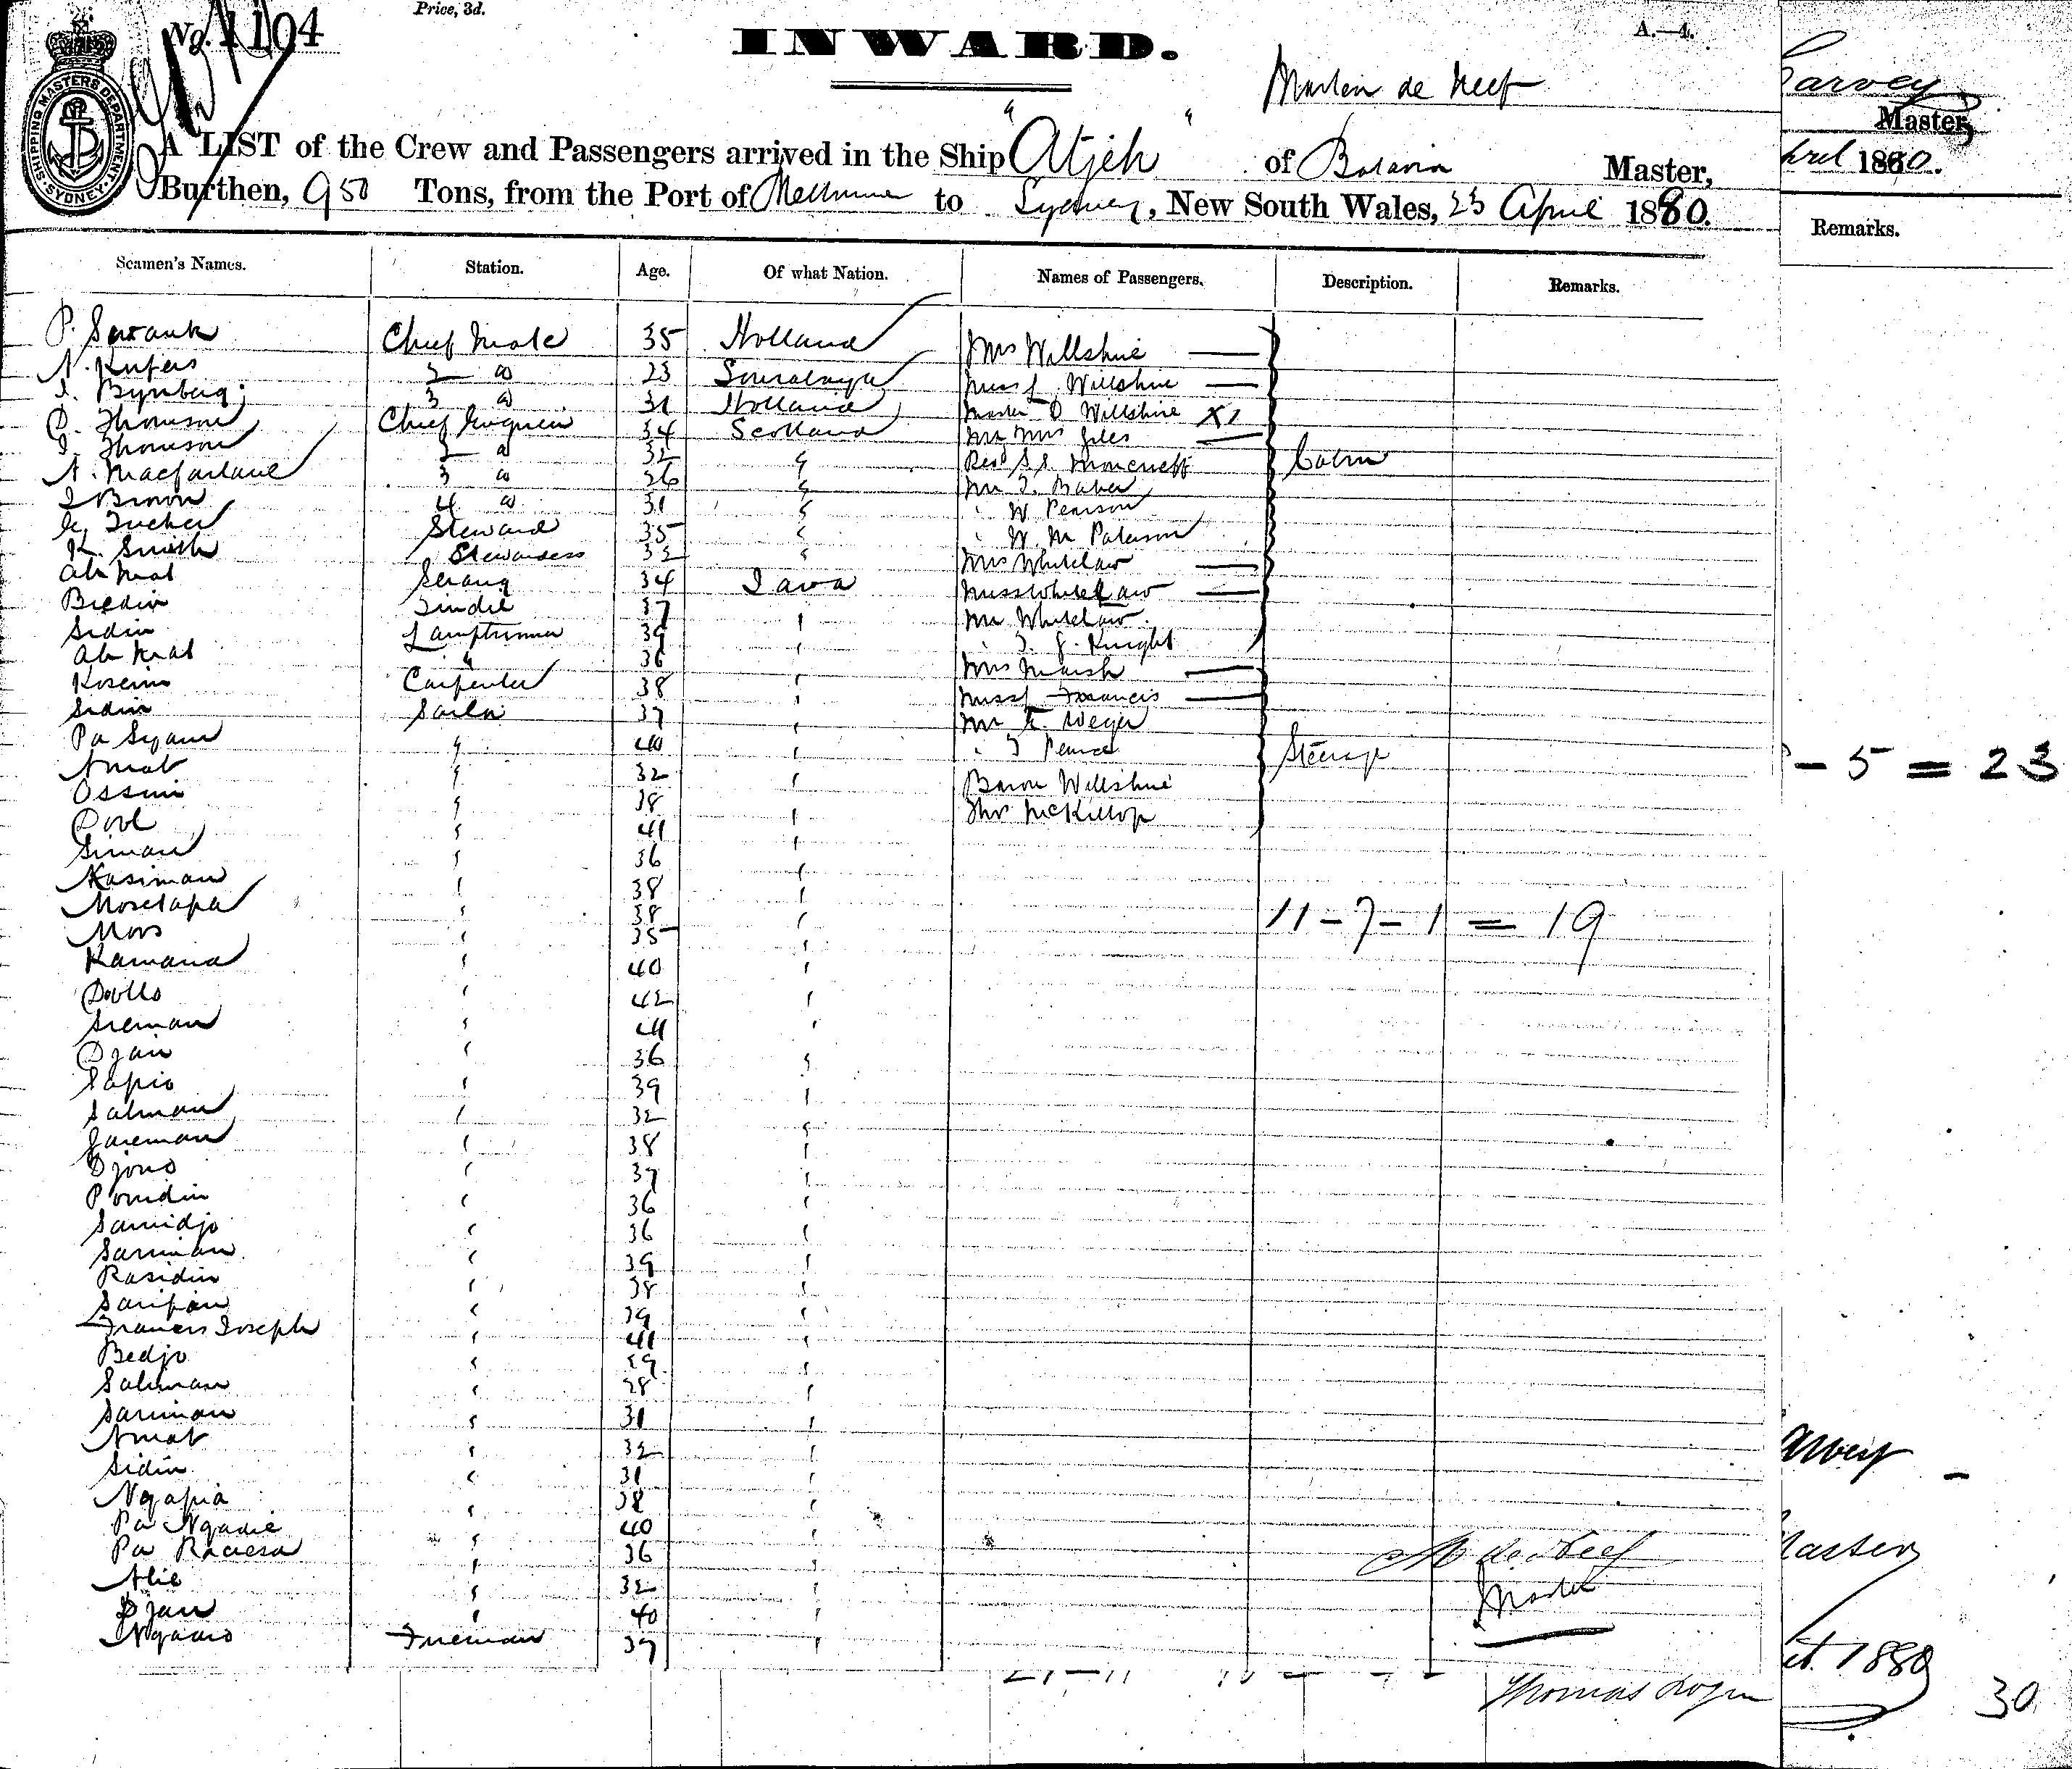 No. 1104
Price, 3d.
INWARD.
A.—4.
SHIPPING MASTERS DEPARTMENT. SYDNEY.
Marten de Neef
A LIST of the Crew and Passengers arrived in the Ship "Atjeh" of Batavia Master,
Burthen, 950 Tons, from the Port of Melbourne to Sydney, New South Wales, 23 April 1880.
Seamen's Names. Station. Age. Of what Nation. Names of Passengers. Description. Remarks.
P. Chief Mate 35 Holland Mrs Willshire
A. Kupers 2 do 23 Sourabaya Miss Willshire
Bynberg 3 do 31 Holland Master D Willshire X1
D. Thomson Chief Engineer 34 Scotland Mr Mrs Giles
J. Thomson 2 do 32 " Revd S.S. Moncrieff Cabin
A. Macfarlane 3 do 26 " Mr J. Baker
J Brown 4 do 31 " W Pearson
G. Tucker Steward 35 " W. M Paterson
K. Smith Stewardess 32 " Mrs Whitelaw
Ah Mat Serang 34 Java Miss Whitelaw
Biedin Tindil 37 " Mr Whitelaw
Sidin Lamptrimmer 39 " J. G. Knight
Ah Mat " 36 " Mrs Marsh
Kosem Carpenter 38 " Miss Francis
Sidin Sailor 37 " Mr Weger
Pa Syam " 40 " J Pearce Steerage
Amat " 32 " Baron Willshire
Ossim " 38 " Thos McKillop
Dool " 41 "
Siman " 36 "
Kasiman " 38 "
Mosetapa " 38 "
Mors " 35 "
11 - 7 - 1 = 19
Kamana " 40 "
Dollo " 42 "
Sieman " 41 "
Djan " 36 "
Sapio " 39 "
Salman " 32 "
Jareman " 38 "
Djono " 37 "
Ponidin " 36 "
Samidjo " 36 "
Sariman " 39 "
Rasidin " 38 "
Saripan " 39 "
Francis Joseph " 41 "
Bedjo " 39 "
Saliman " 28 "
Sariman " 31 "
Amat " 32 "
Sidin " 31 "
Ngapia " 38 "
Pa Ngadie " 40 "
Pa Raciesa " 36 "
Alie " 32 "
Djan " 40 "
Ngadio Fireman 37 "
M de Neef
Master
Thomas
Garvey
Master,
April 1880.
Remarks.
- 5 = 23
Master
1880
30